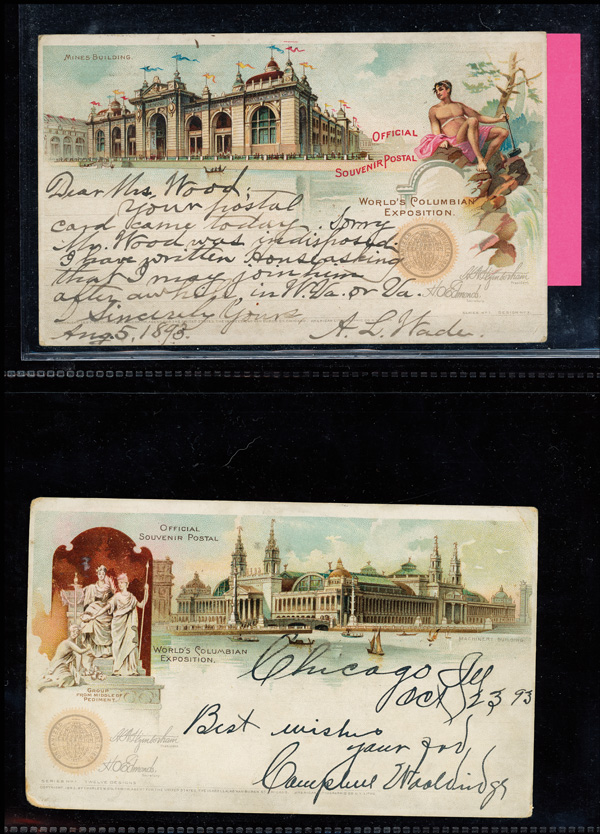 MINES BUILDING.
OFFICIAL
SOUVENIR POSTAL
WORLD'S COLUMBIAN
EXPOSITION.
Dear Mrs. Wood;
Your postal
card came today. Sorry
Mr. Wood was indisposed.
I have written Hons asking
that I may join him
after awhile, in W. Va. or Va.
Sincerely Yours
Aug. 5, 1893.
A. L. Wade.
OFFICIAL
SOUVENIR POSTAL
WORLD'S COLUMBIAN
EXPOSITION.
MACHINERY BUILDING.
GROUP
FROM MIDDLE OF
PEDIMENT.
Chicago Ill
Oct 23 93
Best wishes
your
Campbell Wooldridge
SERIES NO. 1. TWELVE DESIGNS